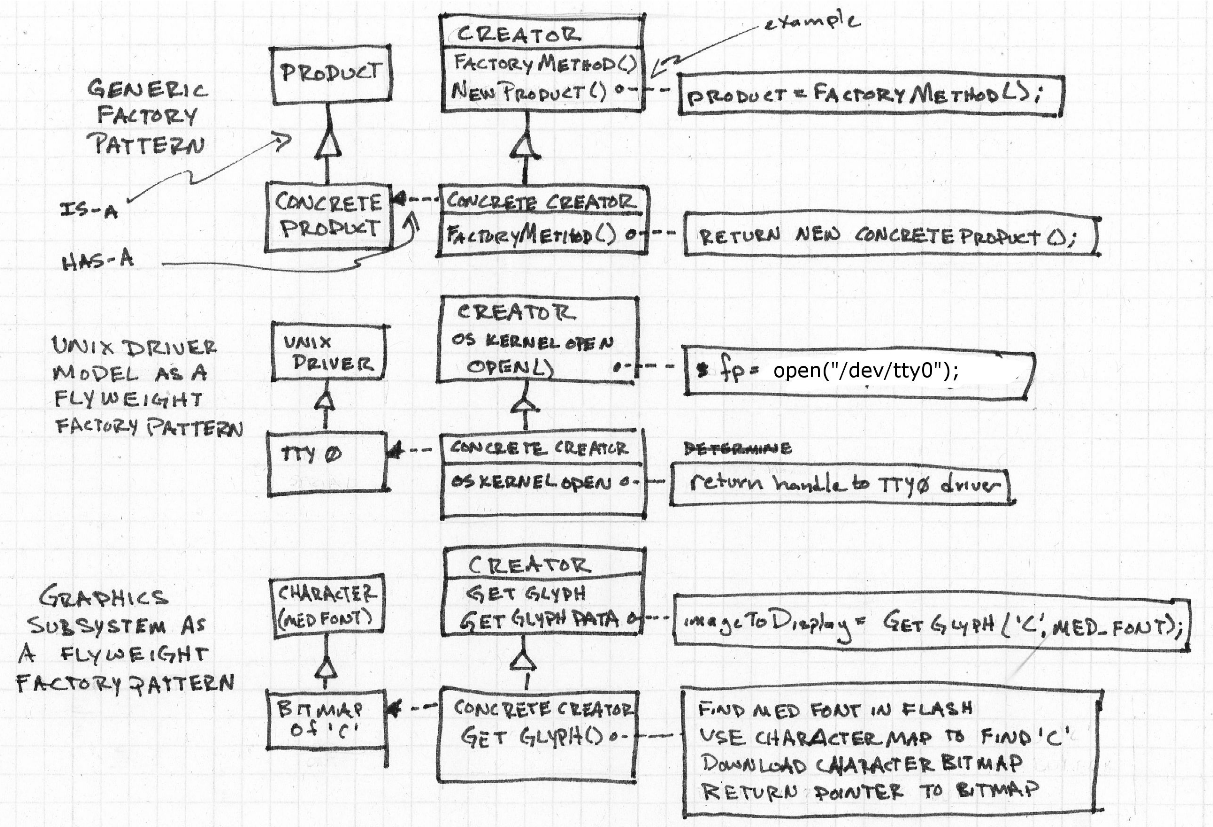 example
CREATOR
PRODUCT
FACTORYMETHOD()
NEWPRODUCT()
PRODUCT = FACTORYMETHOD();
GENERIC
FACTORY
PATTERN
IS-A
HAS-A
CONCRETE
PRODUCT
CONCRETE CREATOR
FACTORYMETHOD()
RETURN NEW CONCRETEPRODUCT();
UNIX DRIVER
MODEL AS A
FLYWEIGHT
FACTORY PATTERN
UNIX
DRIVER
CREATOR
OS KERNEL OPEN
OPEN()
fp = open("/dev/tty0");
TTY 0
CONCRETE CREATOR
OS KERNEL OPEN
DETERMINE
return handle to TTY0 driver
GRAPHICS
SUBSYSTEM AS
A FLYWEIGHT
FACTORY PATTERN
CHARACTER
(MED FONT)
CREATOR
GET GLYPH
GET GLYPH DATA
imageToDisplay = GET GLYPH ('C', MED_FONT);
BITMAP
of 'C'
CONCRETE CREATOR
GET GLYPH()
FIND MED FONT IN FLASH
USE CHARACTER MAP TO FIND 'C'
DOWNLOAD CHARACTER BITMAP
RETURN POINTER TO BITMAP